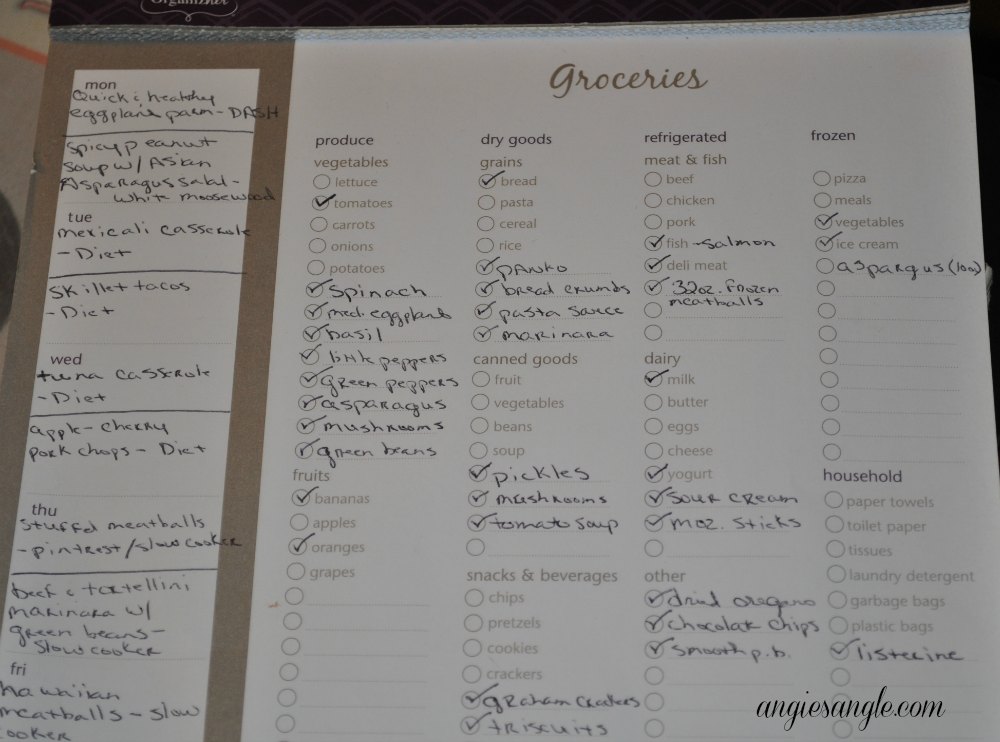 Organizher
mon
Quick & healthy
eggplant parm - DASH
spicy peanut
soup w/ Asian
Asparagus Salad -
white moosewood
tue
mexicali casserole
- Diet
Skillet tacos
- Diet
wed
tuna casserole
- Diet
apple-cherry
pork chops - Diet
thu
stuffed meatballs
- pintrest/slow cooker
beef & tortellini
marinara w/
green beans -
slow cooker
fri
hawiian
meatballs - slow
ooker
Groceries
produce
vegetables
lettuce
tomatoes
carrots
onions
potatoes
spinach
med. eggplant
basil
little peppers
green peppers
asparagus
mushrooms
green beans
fruits
bananas
apples
oranges
grapes
dry goods
grains
bread
pasta
cereal
rice
panko
bread crumbs
pasta sauce
marinara
canned goods
fruit
vegetables
beans
soup
pickles
mushrooms
tomato soup
snacks & beverages
chips
pretzels
cookies
crackers
graham crackers
triscuits
refrigerated
meat & fish
beef
chicken
pork
fish - salmon
deli meat
32oz. frozen
meatballs
dairy
milk
butter
eggs
cheese
yogurt
sour cream
moz. sticks
other
dried oregano
chocolate chips
smooth p.b.
frozen
pizza
meals
vegetables
ice cream
aspargus (10oz)
household
paper towels
toilet paper
tissues
laundry detergent
garbage bags
plastic bags
listerine
angiesangle.com